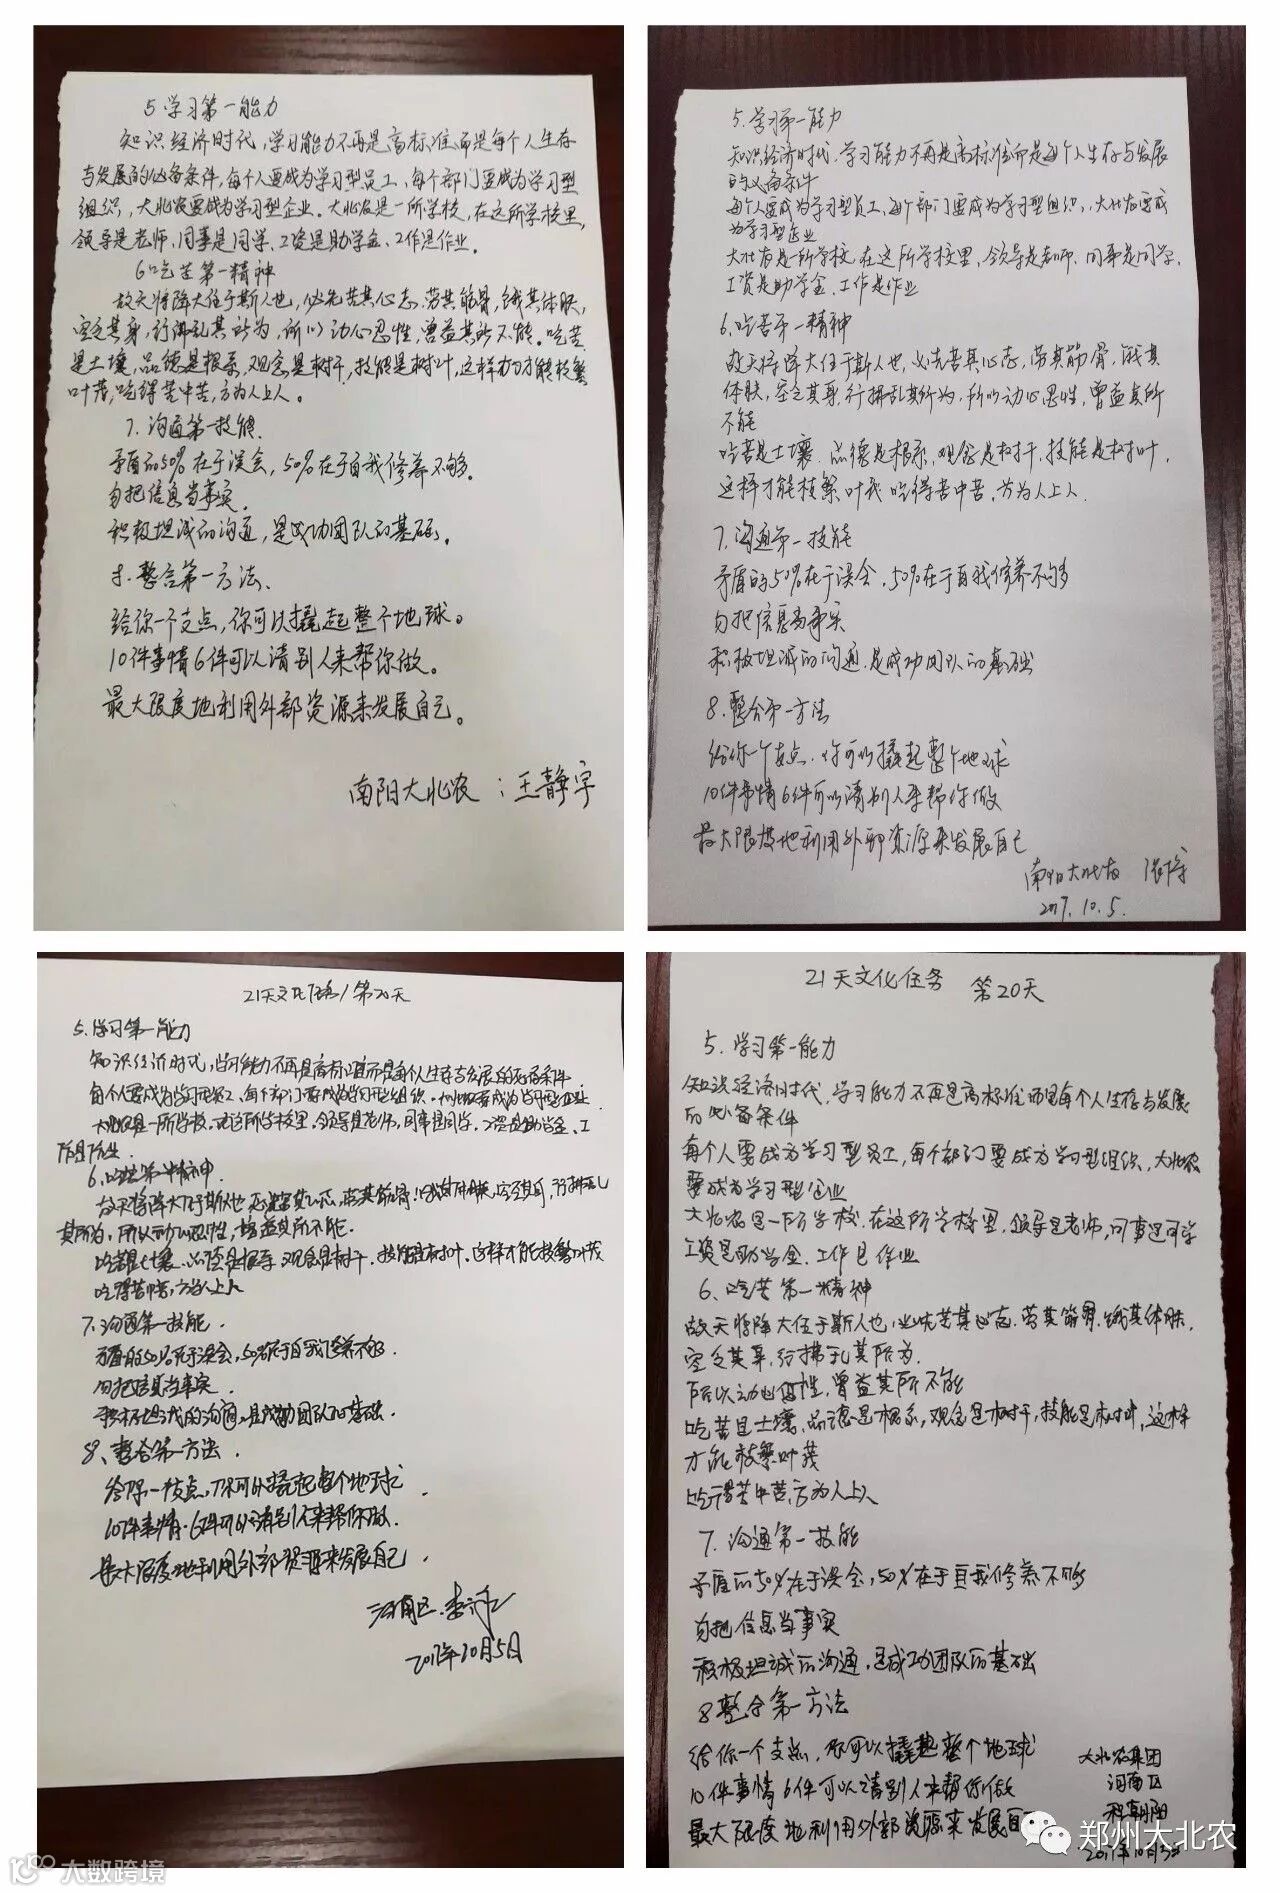 5 学习第一能力
知识经济时代，学习能力不再是高标准而是每个人生存
与发展的必备条件，每个人要成为学习型员工、每个部门要成为学习型
组织，大北农要成为学习型企业。大北农是一所学校，在这所学校里，
领导是老师，同事是同学、工资是助学金、工作是作业。
6吃苦第一精神
故天将降大任于斯人也，必先苦其心志、劳其筋骨，饿其体肤，
空乏其身，行拂乱其所为，所以动心忍性，曾益其所不能。吃苦
是土壤，品德是根系，观念是树干，技能是树叶，这样才能枝繁
叶茂，吃得苦中苦，方为人上人。
7. 沟通第一技能
矛盾的50%在于误会，50%在于自我修养不够。
勿把信息当事实。
积极坦诚的沟通，是成功团队的基础。
8. 整合第一方法、
给你一个支点，你可以撬起整个地球。
10件事情6件可以请别人来帮你做。
最大限度地利用外部资源来发展自己。
南阳大北农：王静宇
5.学习第一能力
知识经济时代，学习能力不再是高标准而是每个人生存与发展
的必备条件
每个人要成为学习型员工，每个部门要成为学习型组织，大北农要成
为学习型企业
大北农是一所学校，在这所学校里，领导是老师，同事是同学，
工资是助学金，工作是作业
6.吃苦第一精神
故天将降大任于斯人也，必先苦其心志，劳其筋骨，饿其
体肤，空乏其身，行拂乱其所为，所以动心忍性，曾益其所
不能
吃苦是土壤，品德是根系，观念是树干，技能是树叶，
这样才能枝繁叶茂 吃得苦中苦，方为人上人
7.沟通第一技能
矛盾的50%在于误会，50%在于自我修养不够
勿把信息当事实
积极坦诚的沟通，是成功团队的基础
8.整合第一方法
给你一个支点，你可以撬起整个地球
10件事情6件可以请别人来帮你做
最大限度地利用外部资源来发展自己
南阳大北农
2017.10.5.
21天文化任务/第20天
5.学习第一能力
知识经济时代，学习能力不再是高标准而是每个人生存与发展的必备条件
每个人要成为学习型员工，每个部门要成为学习型组织，大北农要成为学习型企业.
大北农是一所学校，在这所学校里，领导是老师，同事是同学，工资是助学金、工
作是作业.
6.吃苦第一精神
故天将降大任于斯人也 必先苦其心志，劳其筋骨，饿其体肤，空乏其身，行拂乱
其所为，所以动心忍性，增益其所不能.
吃苦是土壤，品德是根系，观念是树干，技能是树叶，这样才能枝繁叶茂
吃得苦中苦，方为人上人
7.沟通第一技能.
矛盾的50%在于误会，50%在于自我修养不够.
勿把信息当事实.
积极坦诚的沟通，是成功团队的基础.
8、整合第一方法.
给你一个支点，你可以撬起整个地球.
10件事情，6件可以请别人来帮你做.
最大限度地利用外部资源来发展自己.
河南区.
2017年10月5日
21天文化任务 第20天
5. 学习第一能力
知识经济时代，学习能力不再是高标准而是每个人生存与发展
的必备条件
每个人要成为学习型员工，每个部门要成为学习型组织，大北农
要成为学习型企业
大北农是一所学校，在这所学校里，领导是老师，同事是同学
工资是助学金、工作是作业
6、吃苦第一精神
故天将降大任于斯人也，必先苦其心志，劳其筋骨，饿其体肤，
空乏其身，行拂乱其所为，
所以动心忍性，曾益其所不能
吃苦是土壤，品德是根系，观念是树干，技能是树叶，这样
才能枝繁叶茂
吃得苦中苦，方为人上人
7、沟通第一技能
矛盾的50%在于误会，50%在于自我修养不够
勿把信息当事实
积极坦诚的沟通，是成功团队的基础
8整合第一方法
给你一个支点，你可以撬起整个地球
10件事情6件可以请别人来帮你做
最大限度地利用外部资源来发展自
大北农集团
河南区
程朝阳
2017年10月5日
郑州大北农
大数跨境